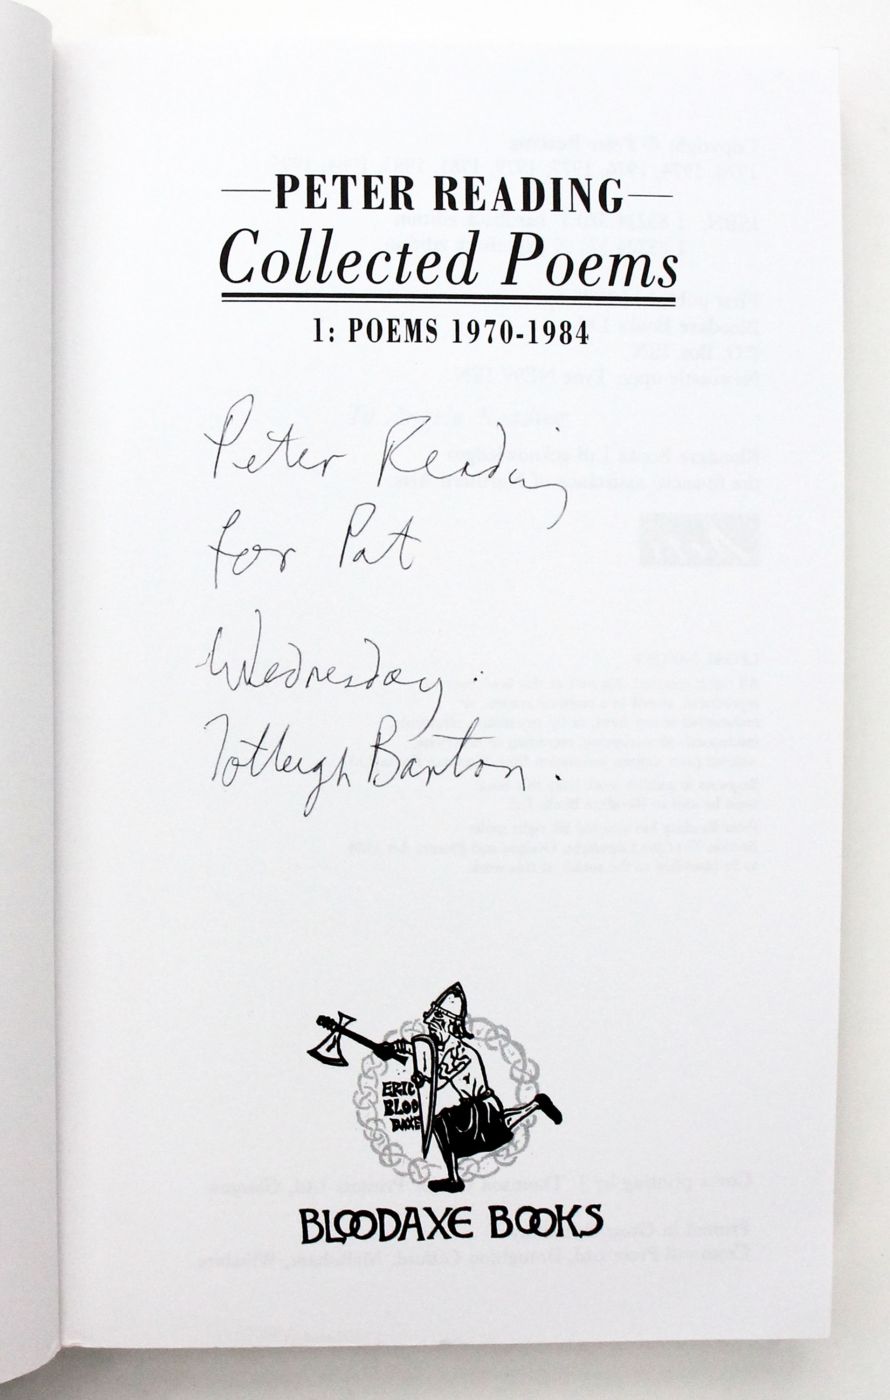 PETER READING
Collected Poems
1: POEMS 1970-1984
Peter Reading
for Pat
Wednesday.
Totleigh Barton.
ERIC
BLOO
DAXE
BLOODAXE BOOKS